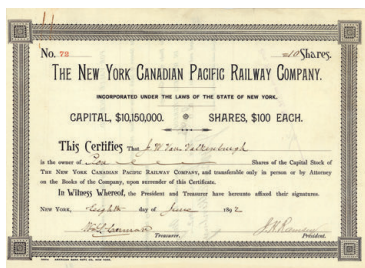 No. 78 10 Shares.
THE NEW YORK CANADIAN PACIFIC RAILWAY COMPANY.
INCORPORATED UNDER THE LAWS OF THE STATE OF NEW YORK.
CAPITAL, $10,150,000. SHARES, $100 EACH.
This Certifies That J. W. Van Valkenburgh
is the owner of Ten Shares of the Capital Stock of
THE NEW YORK CANADIAN PACIFIC RAILWAY COMPANY, and transferable only in person or by Attorney
on the Books of the Company, upon surrender of this Certificate.
In Witness Whereof, the President and Treasurer have hereunto affixed their signatures.
NEW YORK, Eighth day of June 1892.
Treasurer. President.